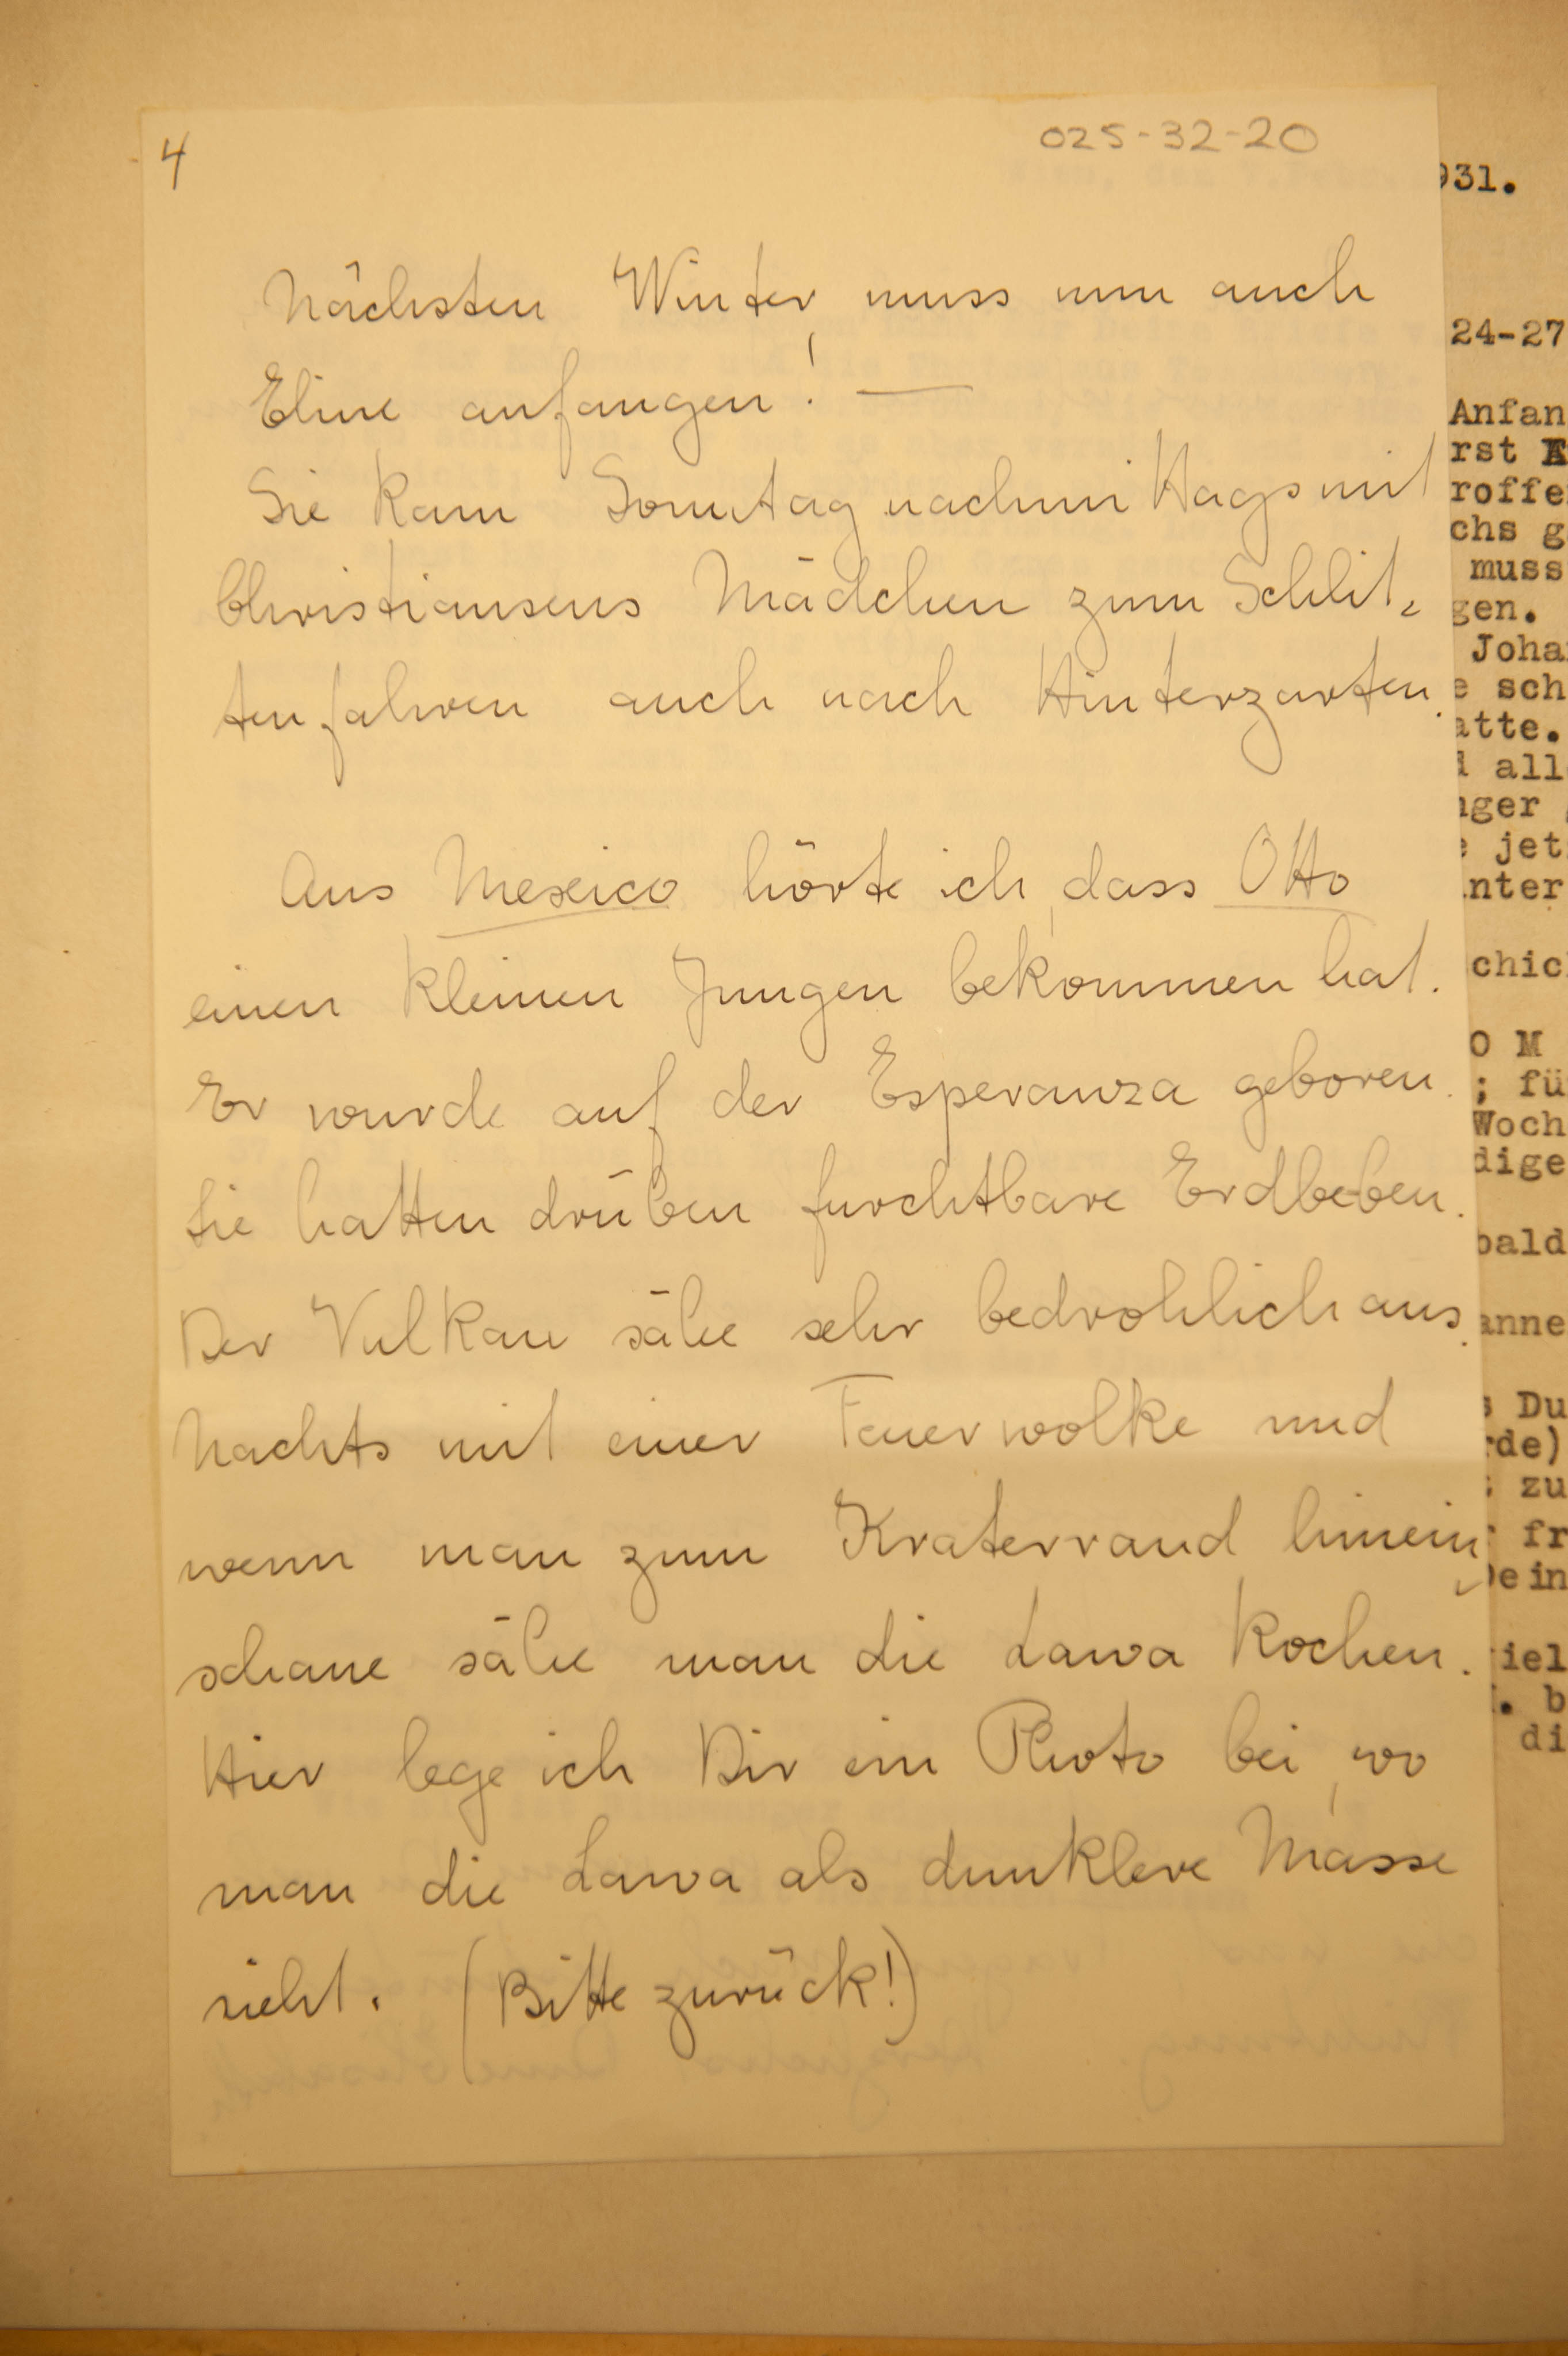 4
025-32-20
Nächsten Winter muss nun auch
Eline anfangen! —
Sie kam Sonntag nachmittags mit
Christiansens Mädchen zum Schlit-
tenfahren auch nach Hinterzarten.
Aus Mexico hörte ich, dass Otto
einen kleinen Jungen bekommen hat.
Er wurde auf der Esperanza geboren.
Sie hatten drüben furchtbare Erdbeben.
Der Vulkan sähe sehr bedrohlich aus.
Nachts mit einer Feuerwolke und
wenn man zum Kraterrand hinein
schaue, sähe man die Lawa kochen.
Hier lege ich Dir ein Photo bei, wo
man die Lawa als dunklere Masse
sieht. (Bitte zurück!)
931.
24-27
Anfan
rst
roffe
chs g
muss
gen.
Joha
e sch
atte.
d all
nger
e jet
nter
chic
O M
; fü
Woch
dige
bald
anne
s Du
rde)
t zu
r fr
Dein
iel
. b
di